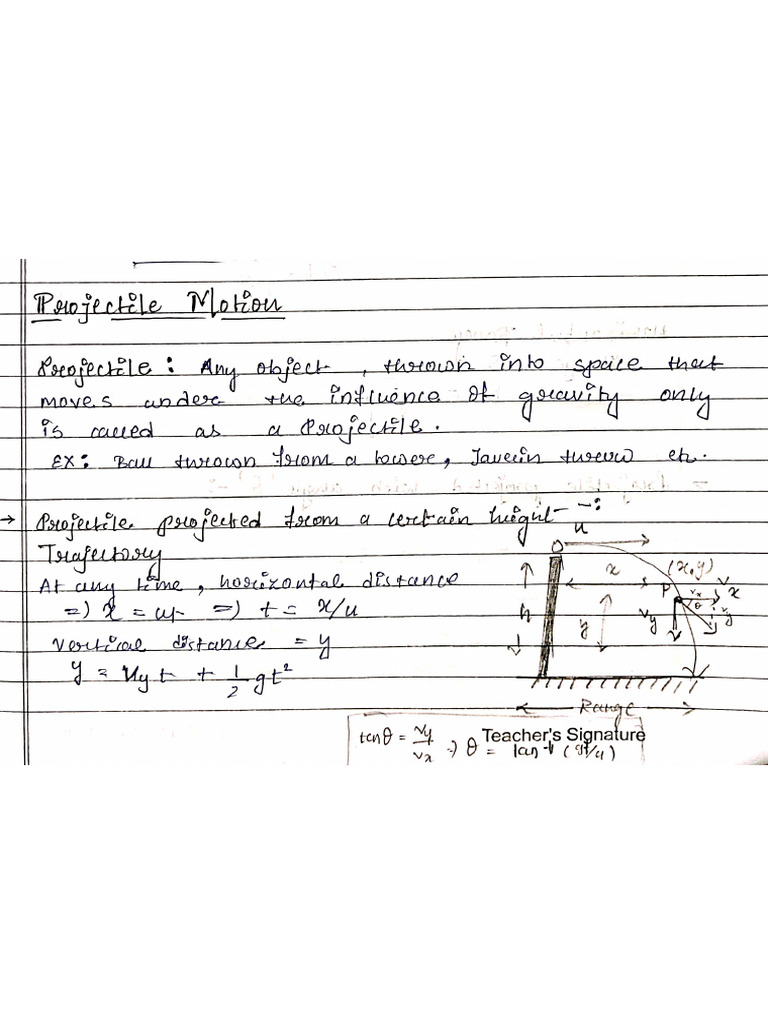 Projectile Motion
Projectile : Any object , thrown into space that
moves under the influence of gravity only
is called as a Projectile.
EX: Ball thrown from a tower, Javelin throw etc.
→ Projectile projected from a certain height - -:
Trajectory
At any time, horizontal distance
=) x = ut =) t = x/u
Vertical distance = y
y = uyt + 1/2 gt²
u
O
x
(x,y)
P
vx
θ
Vx
h
y
Vy
v
Range
tanθ = vy/vx =) θ = tan-1 (gt/u)
Teacher's Signature